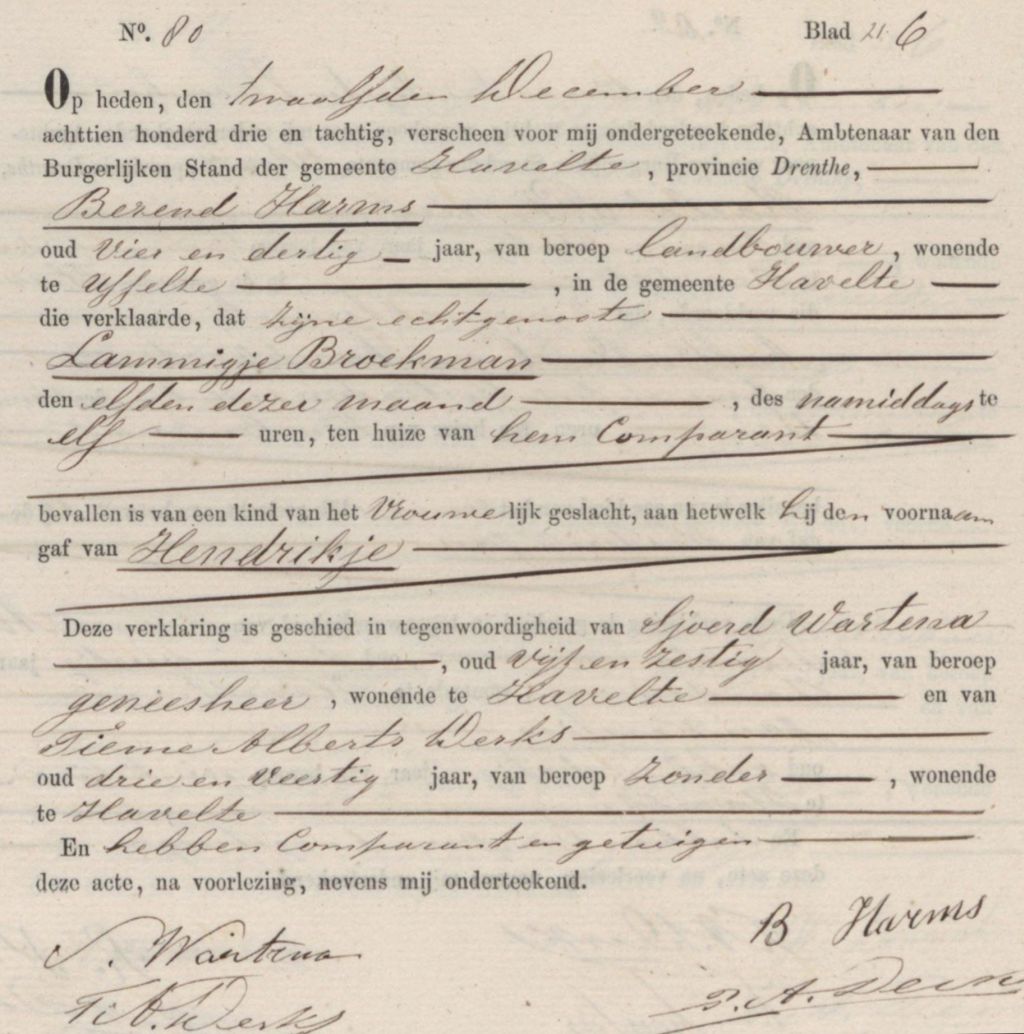 Nº. 80 Blad 21.6
Op heden, den twaalfden December
achttien honderd drie en tachtig, verscheen voor mij ondergeteekende, Ambtenaar van den
Burgerlijken Stand der gemeente Havelte, provincie Drenthe,
Berend Harms
oud vier en dertig jaar, van beroep landbouwer, wonende
te Uffelte, in de gemeente Havelte
die verklaarde, dat zijne echtgenoote
Lammigje Broekman
den elfden dezer maand, des namiddags te
elf uren, ten huize van hem Comparant
bevallen is van een kind van het Vrouwelijk geslacht, aan hetwelk hij den voornaam
gaf van Hendrikje
Deze verklaring is geschied in tegenwoordigheid van Sjoerd Wartena
, oud vijf en zestig jaar, van beroep
geneesheer, wonende te Havelte en van
Tieme Alberts Derks
oud drie en veertig jaar, van beroep zonder, wonende
te Havelte
En hebben Comparant en getuigen
deze acte, na voorlezing, nevens mij onderteekend.
B Harms
S. Wartena
T. A. Derks